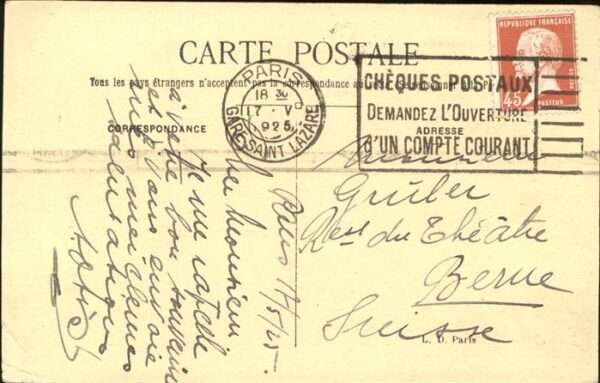 CARTE POSTALE
Tous les pays étrangers n'acceptent pas la correspondance au
CORRESPONDANCE
RÉPUBLIQUE FRANÇAISE
45
PASTEUR
PARIS
18 30
17 · V
1925
GARE SAINT-LAZARE
CHÈQUES POSTAUX
DEMANDEZ L'OUVERTURE
ADRESSE
D'UN COMPTE COURANT
Monsieur
Grüber
Rest du Théâtre
Berne
Suisse
L. D. Paris
Paris 17/5/25.
Cher Monsieur
Je me rapelle
à votre bon souvenir
et vous envoie
mes meilleures
salutations